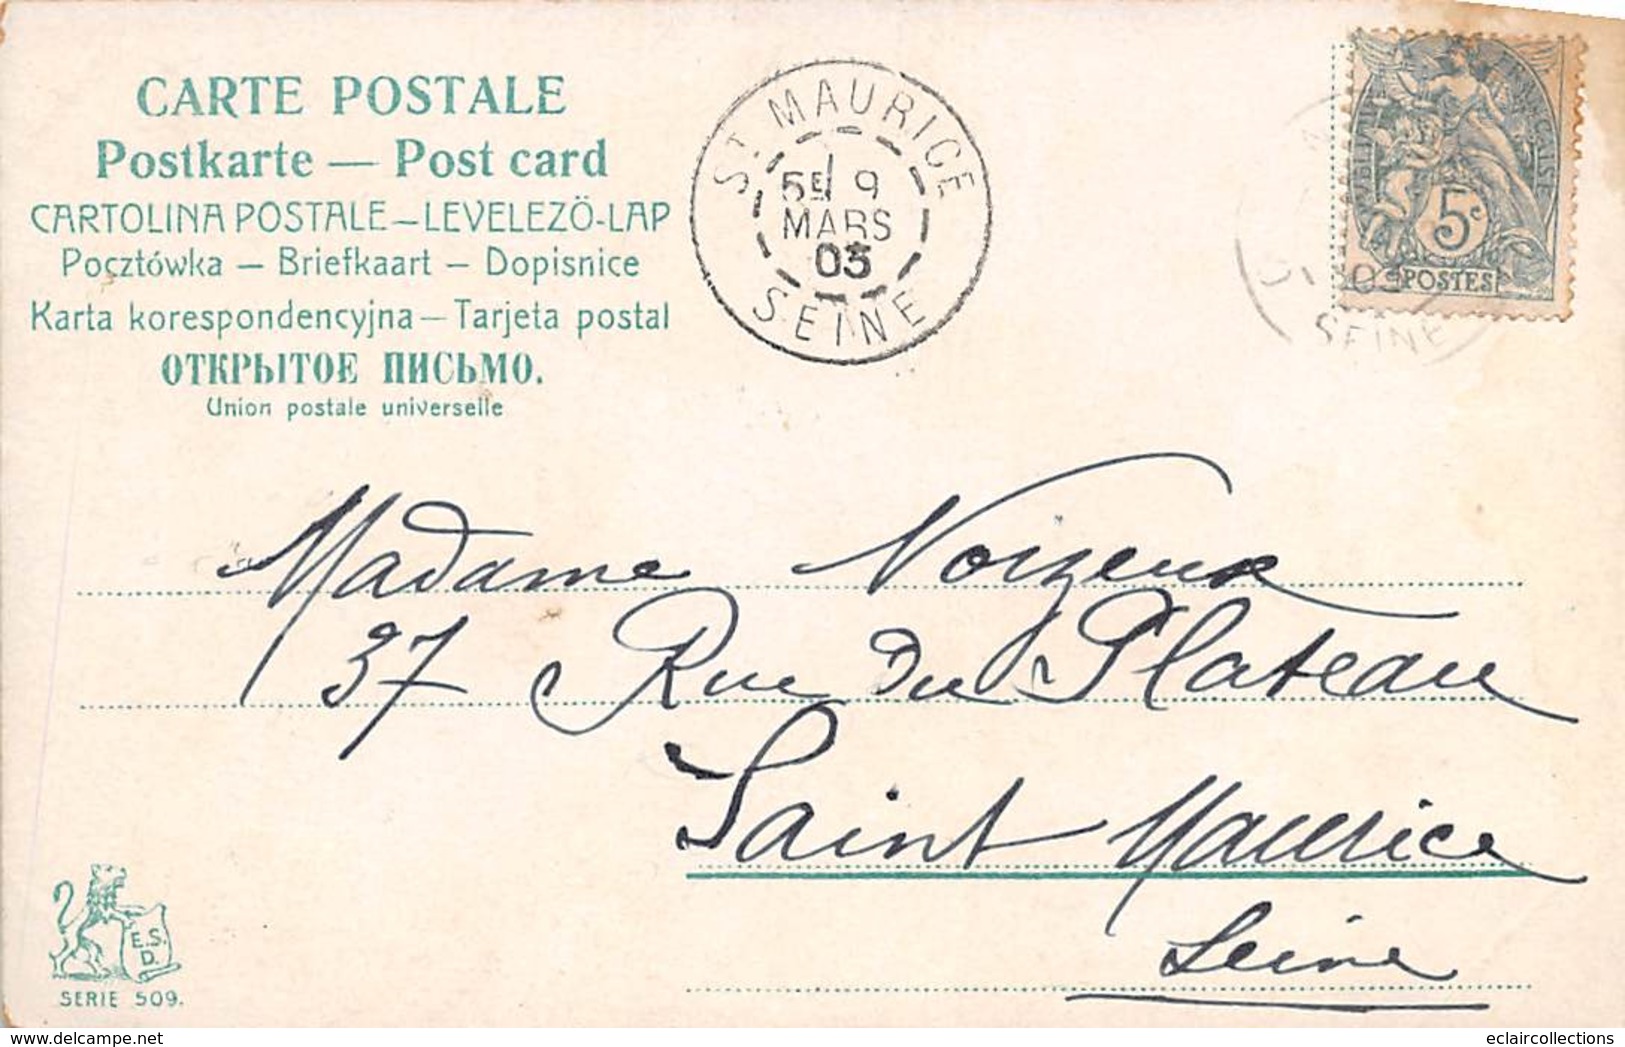 CARTE POSTALE
Postkarte — Post card
CARTOLINA POSTALE — LEVELEZÖ-LAP
Pocztówka — Briefkaart — Dopisnice
Karta korespondencyjna — Tarjeta postal
ОТКРЫТОЕ ПИСЬМО.
Union postale universelle
ST MAURICE
5E 9
MARS
03
SEINE
FRANÇAISE
5c
POSTES
03
SEINE
Madame Noizeux
37 Rue du Plateau
Saint Maurice
Seine
E.S.
D.
SERIE 509.
delcampe.net
eclaircollections